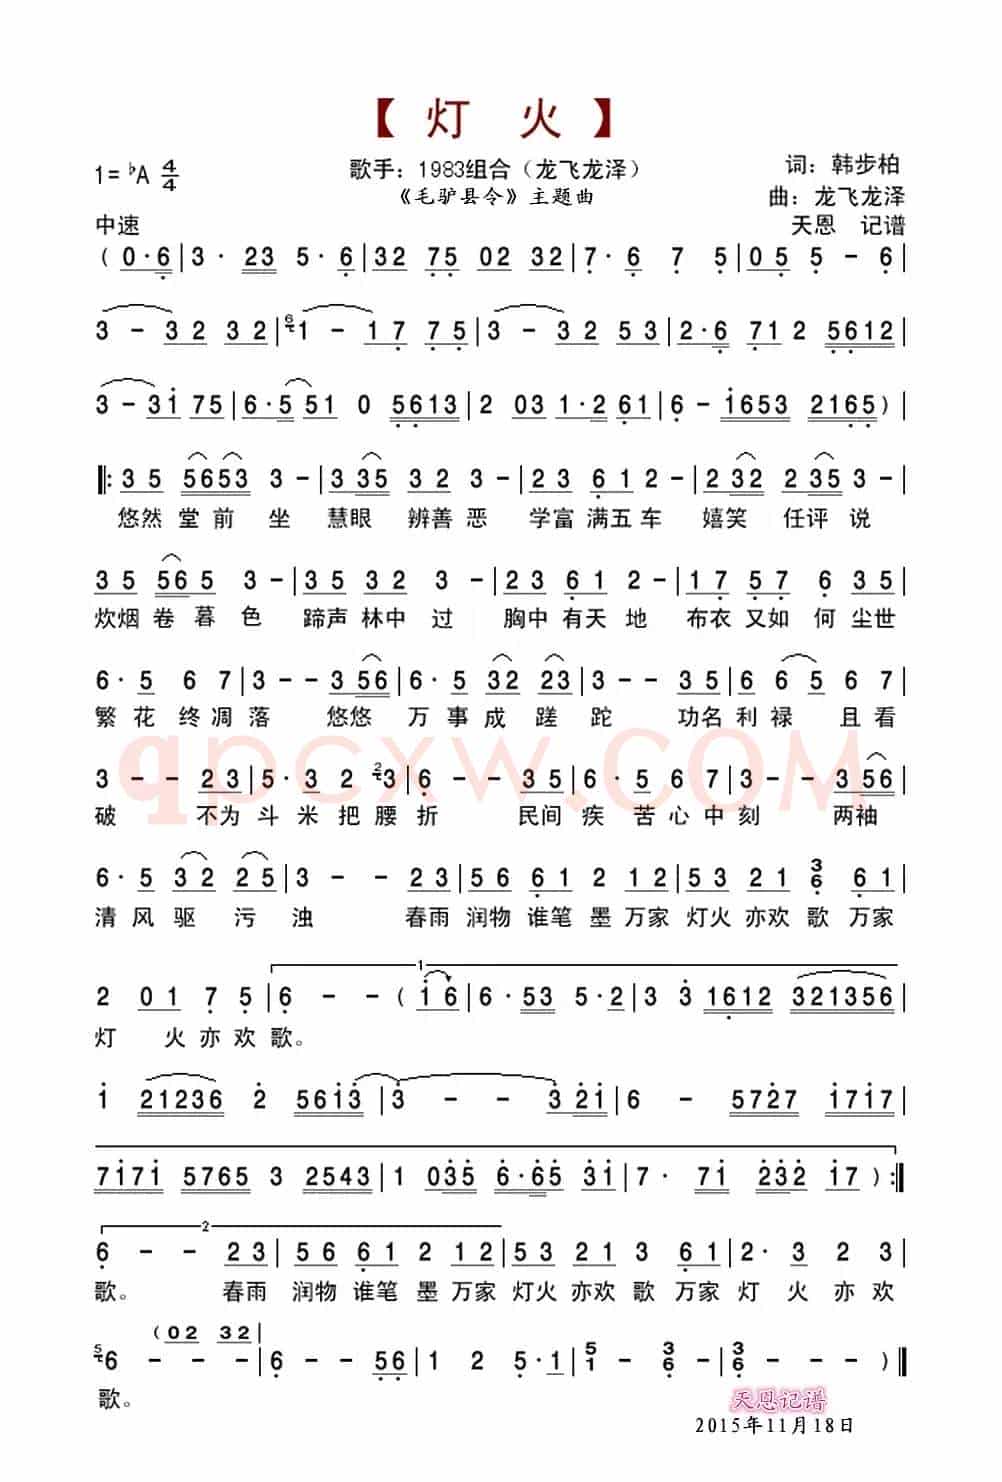 【 灯 火 】
1= ♭A 4/4
歌手：1983组合（龙飞龙泽）
词：韩步柏
《毛驴县令》主题曲
曲：龙飞龙泽
中速
天恩 记谱
( 0·6 | 3· 23 5·6 | 32 75 02 32 | 7·6 7 5 | 05 5 - 6 |
3 - 32 32 | 6 1 - 17 75 | 3 - 32 53 | 2·6 71 2 5612 |
3 - 31 75 | 6·5 51 0 5613 | 2 03 1·2 61 | 6 - 1653 2165 ) |
‖: 35 5653 3 - | 3 35 32 3 - | 23 61 2 - | 2 32 2 35 3 - |
悠然 堂前 坐 慧眼 辨善 恶 学富 满五 车 嬉笑 任评 说
35 56 5 3 - | 35 32 3 - | 23 61 2 - | 17 57 6 35 |
炊烟 卷 暮 色 蹄声 林中 过 胸中 有天 地 布衣 又如 何 尘世
6·5 6 7 | 3 - - 3 56 | 6·5 32 23 | 3 - - 35 | 6 6 5 67 |
繁 花 终 凋 落 悠悠 万 事 成 蹉 跎 功名 利 禄 且 看
3 - - 23 | 5·3 2 2 3 | 6 - - 35 | 5·6 6 7 | 3 - - 3 56 |
破 不为 斗 米 把 腰 折 民间 疾 苦 心 中 刻 两袖
6·5 32 25 | 3 - - 23 | 56 61 2 12 | 53 21 3/6 61 |
清 风 驱 污 浊 春雨 润物 谁笔 墨 万家 灯火 亦欢 歌 万家
1
2 01 7 5 | 6 - - ( 16 | 6·53 5·2 | 3 3 1612 321356 |
灯 火 亦 欢 歌。
1 21236 2 5613 | 3 - - 3 21 | 6 - 5727 1717 |
7171 5765 3 2543 | 1 035 6·65 31 | 7· 71 232 17 ) :‖
2
6 - - 23 | 56 61 2 12 | 53 21 3 61 | 2· 3 2 3 |
歌。 春雨 润物 谁笔 墨 万家 灯火 亦欢 歌 万家 灯 火 亦 欢
( 02 32 |
5 6 - - - | 6 - - 56 | 1 2 5·1 | 5/1 - - 3/6 | 3/6 - - - ) ‖
歌。
qpcxw.com
天恩记谱
2015年11月18日